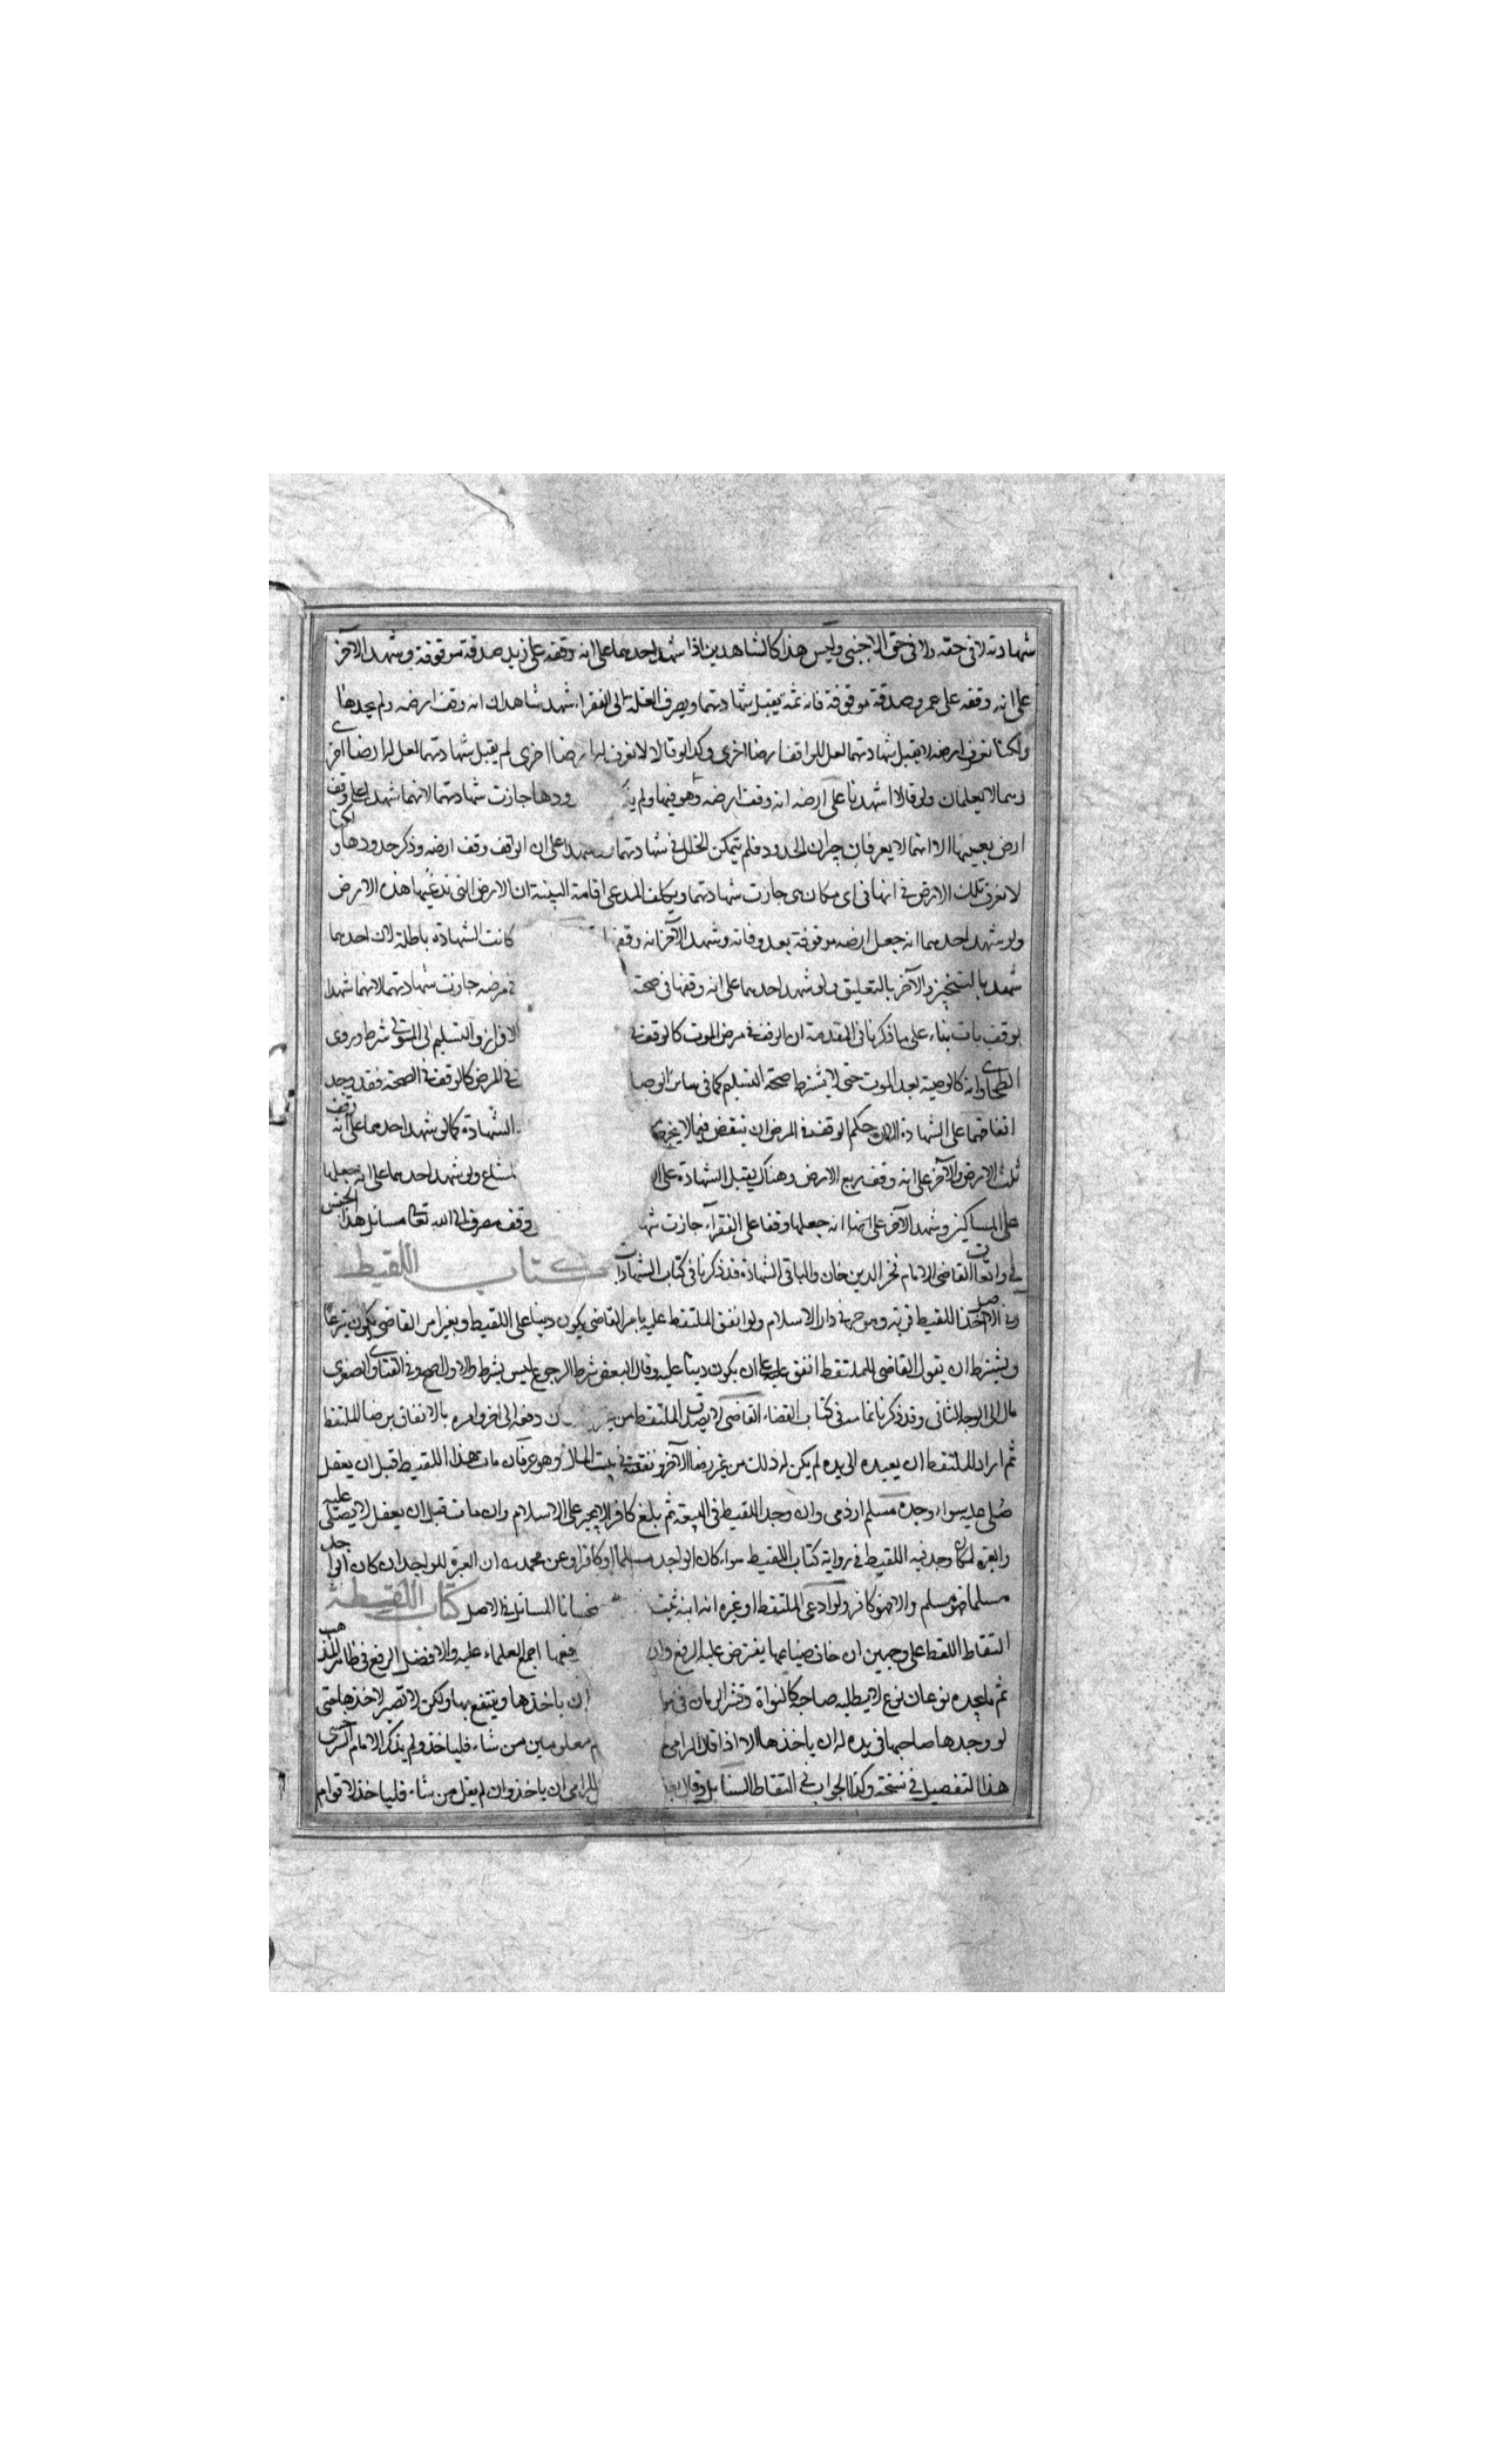 شهادته لا في حقه ولا في حق الاجنبي وليس هذا كالشاهدين اذا شهد احدهما على انه وقفه على زيد صدقة موقوفة وشهد الآخر
على انه وقفه على عمرو صدقة موقوفة فانه ثمه يقبل شهادتهما ويصرف الغلة الى الفقراء شهد شاهدان انه وقف ارضه ولم يحدها
ولكنا نعرف ارضه لا يقبل شهادتهما لعل للواقف ارضا اخرى وكذا لو قالا لا نعرف له ارضا اخرى لم يقبل شهادتهما لعل له ارضا اخرى
وهما لا يعلمان ولو قالا اشهدنا على ارضه انه وقف ارضه وهو فيها ولم ودها جازت شهادتهما لانهما شهدا على وقف
ارض بعينها الا انهما لا يعرفان جيران الحدود فلم يتمكن الخلل في شهادتهما شهدا على ان الواقف وقف ارضه وذكر حدودها ولكنا
لا نعرف تلك الارض في انها في اي مكان هي جازت شهادتهما ويكلف المدعي اقامة البينة ان الارض التي تدعيها هذه الارض
ولو شهد احدهما انه جعل ارضه موقوفة بعد وفاته وشهد الآخر انه وقفها كانت الشهادة باطلة لان احدهما
شهد بالتنجيز والآخر بالتعليق ولو شهد احدهما على انه وقفها في صحته في مرضه جازت شهادتهما لانهما شهدا
بوقف بات بناء على ما ذكرنا في المقدمة ان الوقف في مرض الموت كالوقف في الافراز والتسليم الى المتولي شرط وروى
الطحاوي انه كالوصية بعد الموت حتى لا يشترط صحة التسليم كما في سائر الوصا في المرض كالوقف في الصحة فقد وجد
اتفاقهما على الشهادة الا ان حكم الوقف في المرض ان ينقض فيما لا يخرج الشهادة كما لو شهد احدهما على انه وقف
ثلث الارض والآخر على انه وقف ربع الارض وهناك يقبل الشهادة على ال مشاع ولو شهد احدهما على انه جعلها
على المساكين وشهد الآخر على انه جعلها وقفا على الفقرآء جازت شها وقف مصرف الى الله تعالى مسائل هذا الجنس
في واقعات القاضي الامام فخر الدين خان والباقي الشهادة قد ذكرنا في كتاب الشهادات كتاب اللقيط
وفي الاصل اخذ اللقيط قربة وهو حر في دار الاسلام ولو انفق الملتقط عليه بامر القاضي يكون دينا على اللقيط وبغير امر القاضي يكون تبرعا
ويشترط ان يقول القاضي للملتقط انفق عليه على ان يكون دينا عليه وقال البعض شرط الرجوع ليس بشرط والاول اصح وفي الفتاوى الصغرى
مال الى الوجه الثاني وقد ذكرنا تمامه في كتاب القضاء القاضي لا يصدق الملتقط من غير ان دفعه الى اخر وامره بالانفاق برضا الملتقط
ثم اراد الملتقط ان يعيده الى يده لم يكن له ذلك من غير رضا الآخر ونفقته في بيت المال وهو حر فان مات هذا اللقيط قبل ان يعقل
صلى عليه سواء وجده مسلم او ذمي وان وجد اللقيط في البيعة ثم بلغ كافرا لا يجبر على الاسلام وان مات قبل ان يعقل لا يصلى عليه
والعبرة لمكان وجد فيه اللقيط في رواية كتاب اللقيط سواء كان الواجد مسلما او كافرا وعن محمد ان العبرة للواجد ان كان الواجد
مسلما فهو مسلم والا فهو كافر ولو ادعى الملتقط او غيره انه ابنه ثبت استحسانا المسائل في الاصل كتاب اللقطة
التقاط اللقط على وجهين ان خاف ضياعها يفترض عليه الرفع وان رفعها اجمع العلماء عليه والافضل الرفع في ظاهر المذهب
ثم ما يجده نوعان نوع لا يطلبه صاحبه كالنواة وقشر الرمان في ان ياخذها وينتفع بها ولكن لا تصير لاخذها حتى
لو وجدها صاحبها في يده له ان ياخذها الا اذا قال الرامي معلومين من شاء فلياخذ ولم يذكر الامام السرخسي
هذا التفصيل في نسخته وكذا الجواب في التقاط السنابل وقال للرامي ان ياخذ وان لم يقل من شاء فلياخذ لاقوام